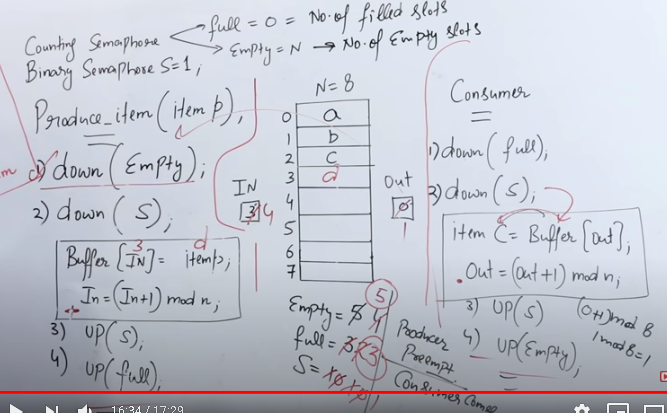 Counting Semaphore
full = 0 = No. of filled slots
Empty = N → No. of Empty slots
Binary Semaphore S=1;
Produce_item(item p);
1) down(Empty);
2) down(S);
Buffer[IN] = itemp;
3
d
In = (In+1) mod n;
3) UP(S);
4) UP(full);
N=8
0 a
1 b
2 c
3 d
4
5
6
7
IN
3 4
Out
0
1
Empty = 5 4
5
full = 3
3
S =
Producer
Preempt
Consumer
Consumer
1) down(full);
2) down(S);
item C = Buffer[Out];
Out = (Out+1) mod n;
3) UP(S)
4) UP(Empty);
(0+1) mod 8
1 mod 8 = 1
16:34 / 17:29